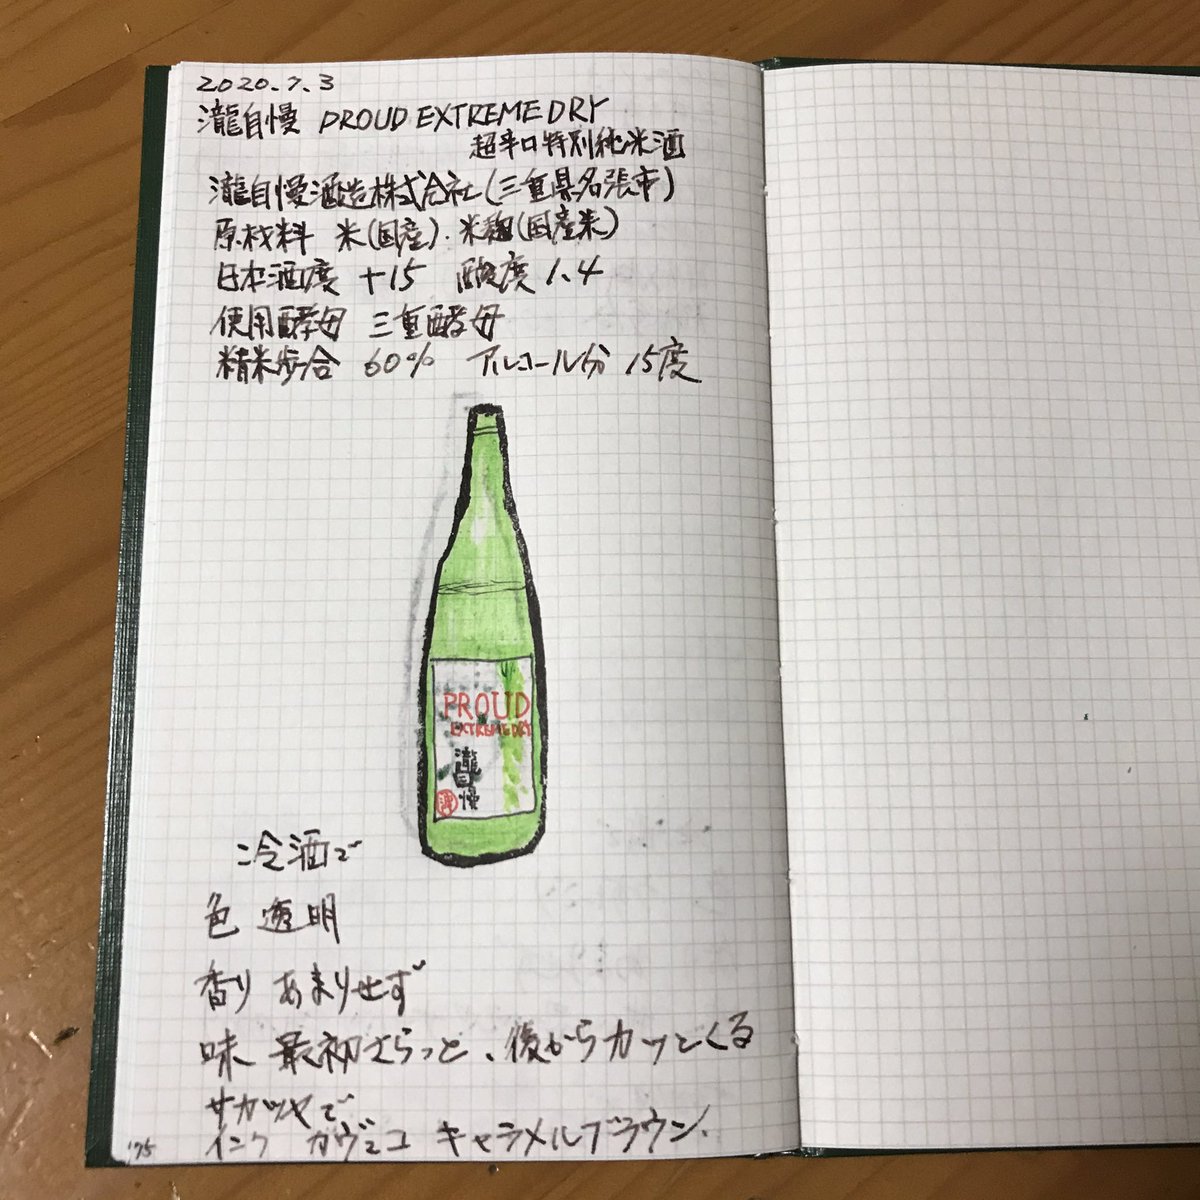 2020.7.3
瀧自慢 PROUD EXTREME DRY
超辛口特別純米酒
瀧自慢酒造株式会社(三重県名張市)
原材料 米(国産)、米麹(国産米)
日本酒度 +15 酸度 1.4
使用酵母 三重酵母
精米歩合 60% アルコール分 15度
PROUD
EXTREME DRY
瀧自慢
冷酒で
色 透明
香り あまりせず
味 最初さらっと、後からカッとくる
サカツヤで
インク カヴェコ キャラメルブラウン.